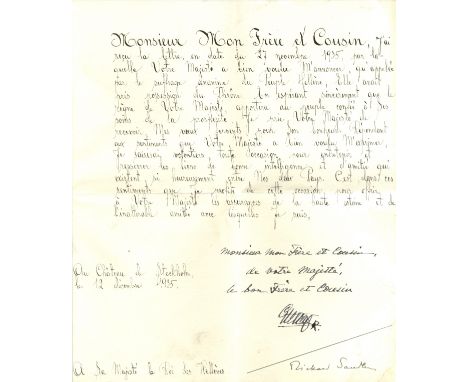 Monsieur Mon Frère et Cousin, J'ai
reçu la lettre, en date du 27 novembre 1935, par la-
quelle Votre Majesté a bien voulu M'annoncer, qu'appelée
par le suffrage unanime du Peuple Hellène, Elle avait
pris possession du Trône. En espérant sincèrement que le
règne de Votre Majesté apportera au peuple confié à Ses
soins de la prospérité Je prie Votre Majesté de
recevoir Mes vœux fervents pour Son bonheur. Répondant
aux sentiments que Votre Majesté a bien voulu M'exprimer,
Je saisirai volontiers toute occasion pour
préserver les liens de bonne intelligence et d'amitié qui
existent si heureusement entre Nos deux Pays. C'est dans ces
sentiments que Je profite de cette occasion pour offrir
à Votre Majesté les assurances de la haute estime et de
l'inaltérable amitié avec lesquelles Je suis,
Monsieur mon Frère et Cousin,
de votre Majesté,
le bon Frère et Cousin
Au Château de Stockholm,
le 12 décembre 1935.
A Sa Majesté le Roi des Hellènes
Rickard Sandler